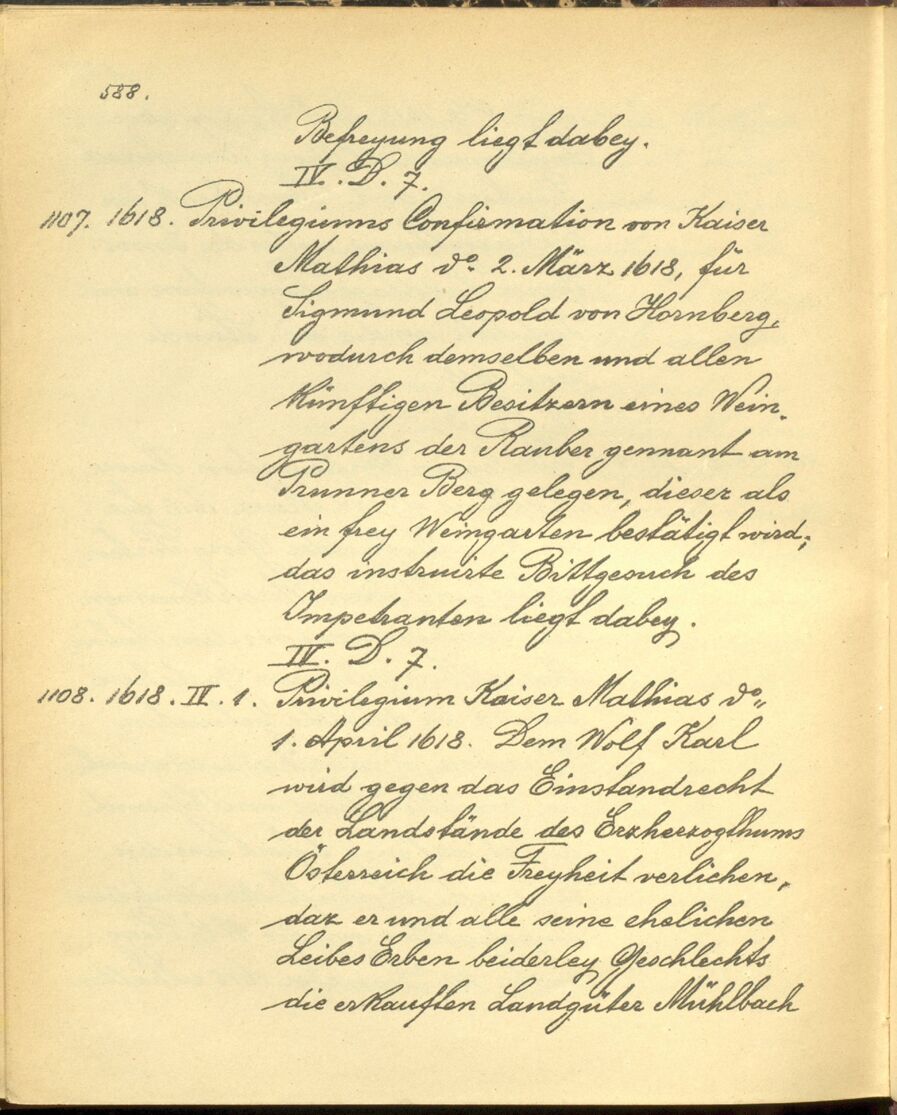 588.
Befreyung liegt dabey.
IV. D. 7.
1107. 1618. Privilegiums Confirmation von Kaiser
Mathias do. 2. März 1618, für
Sigmund Leopold von Hornberg,
wodurch demselben und allen
künftigen Besitzern eines Wein-
gartens der Rauber gennant am
Prunner Berg gelegen, dieser als
ein frey Weingarten bestätigt wird;
das instruirte Bittgesuch des
Impetranten liegt dabey.
IV. D. 7.
1108. 1618. IV. 1. Privilegium Kaiser Mathias do
1. April 1618. Dem Wolf Karl
wird gegen das Einstandrecht
der Landstände des Erzherzogthums
Österreich die Freyheit verlichen,
daz er und alle seine ehelichen
Leibes Erben beiderley Geschlechts
die erkauften Landgüter Mühlbach